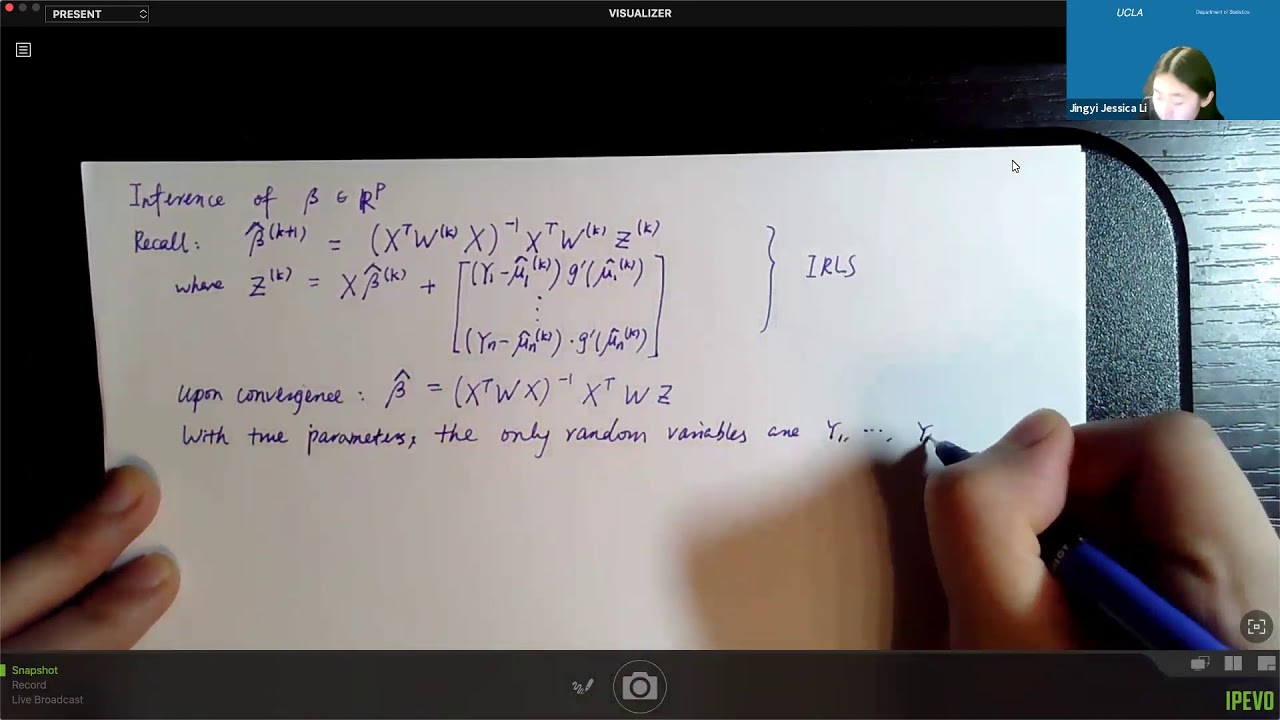 PRESENT
VISUALIZER
UCLA
Department of Statistics
Jingyi Jessica Li
Inference of β ∈ ℝᵖ
Recall: β̂⁽ᵏ⁺¹⁾ = (XᵀW⁽ᵏ⁾X)⁻¹ XᵀW⁽ᵏ⁾ Z⁽ᵏ⁾
where Z⁽ᵏ⁾ = Xβ̂⁽ᵏ⁾ + [(Y₁-μ̂₁⁽ᵏ⁾) g'(μ̂₁⁽ᵏ⁾)
⋮
(Yₙ-μ̂ₙ⁽ᵏ⁾)·g'(μ̂ₙ⁽ᵏ⁾)]
} IRLS
Upon convergence: β̂ = (XᵀWX)⁻¹ XᵀWZ
With true parameters, the only random variables are Y₁, ⋯, Y
Snapshot
Record
Live Broadcast
IPEVO